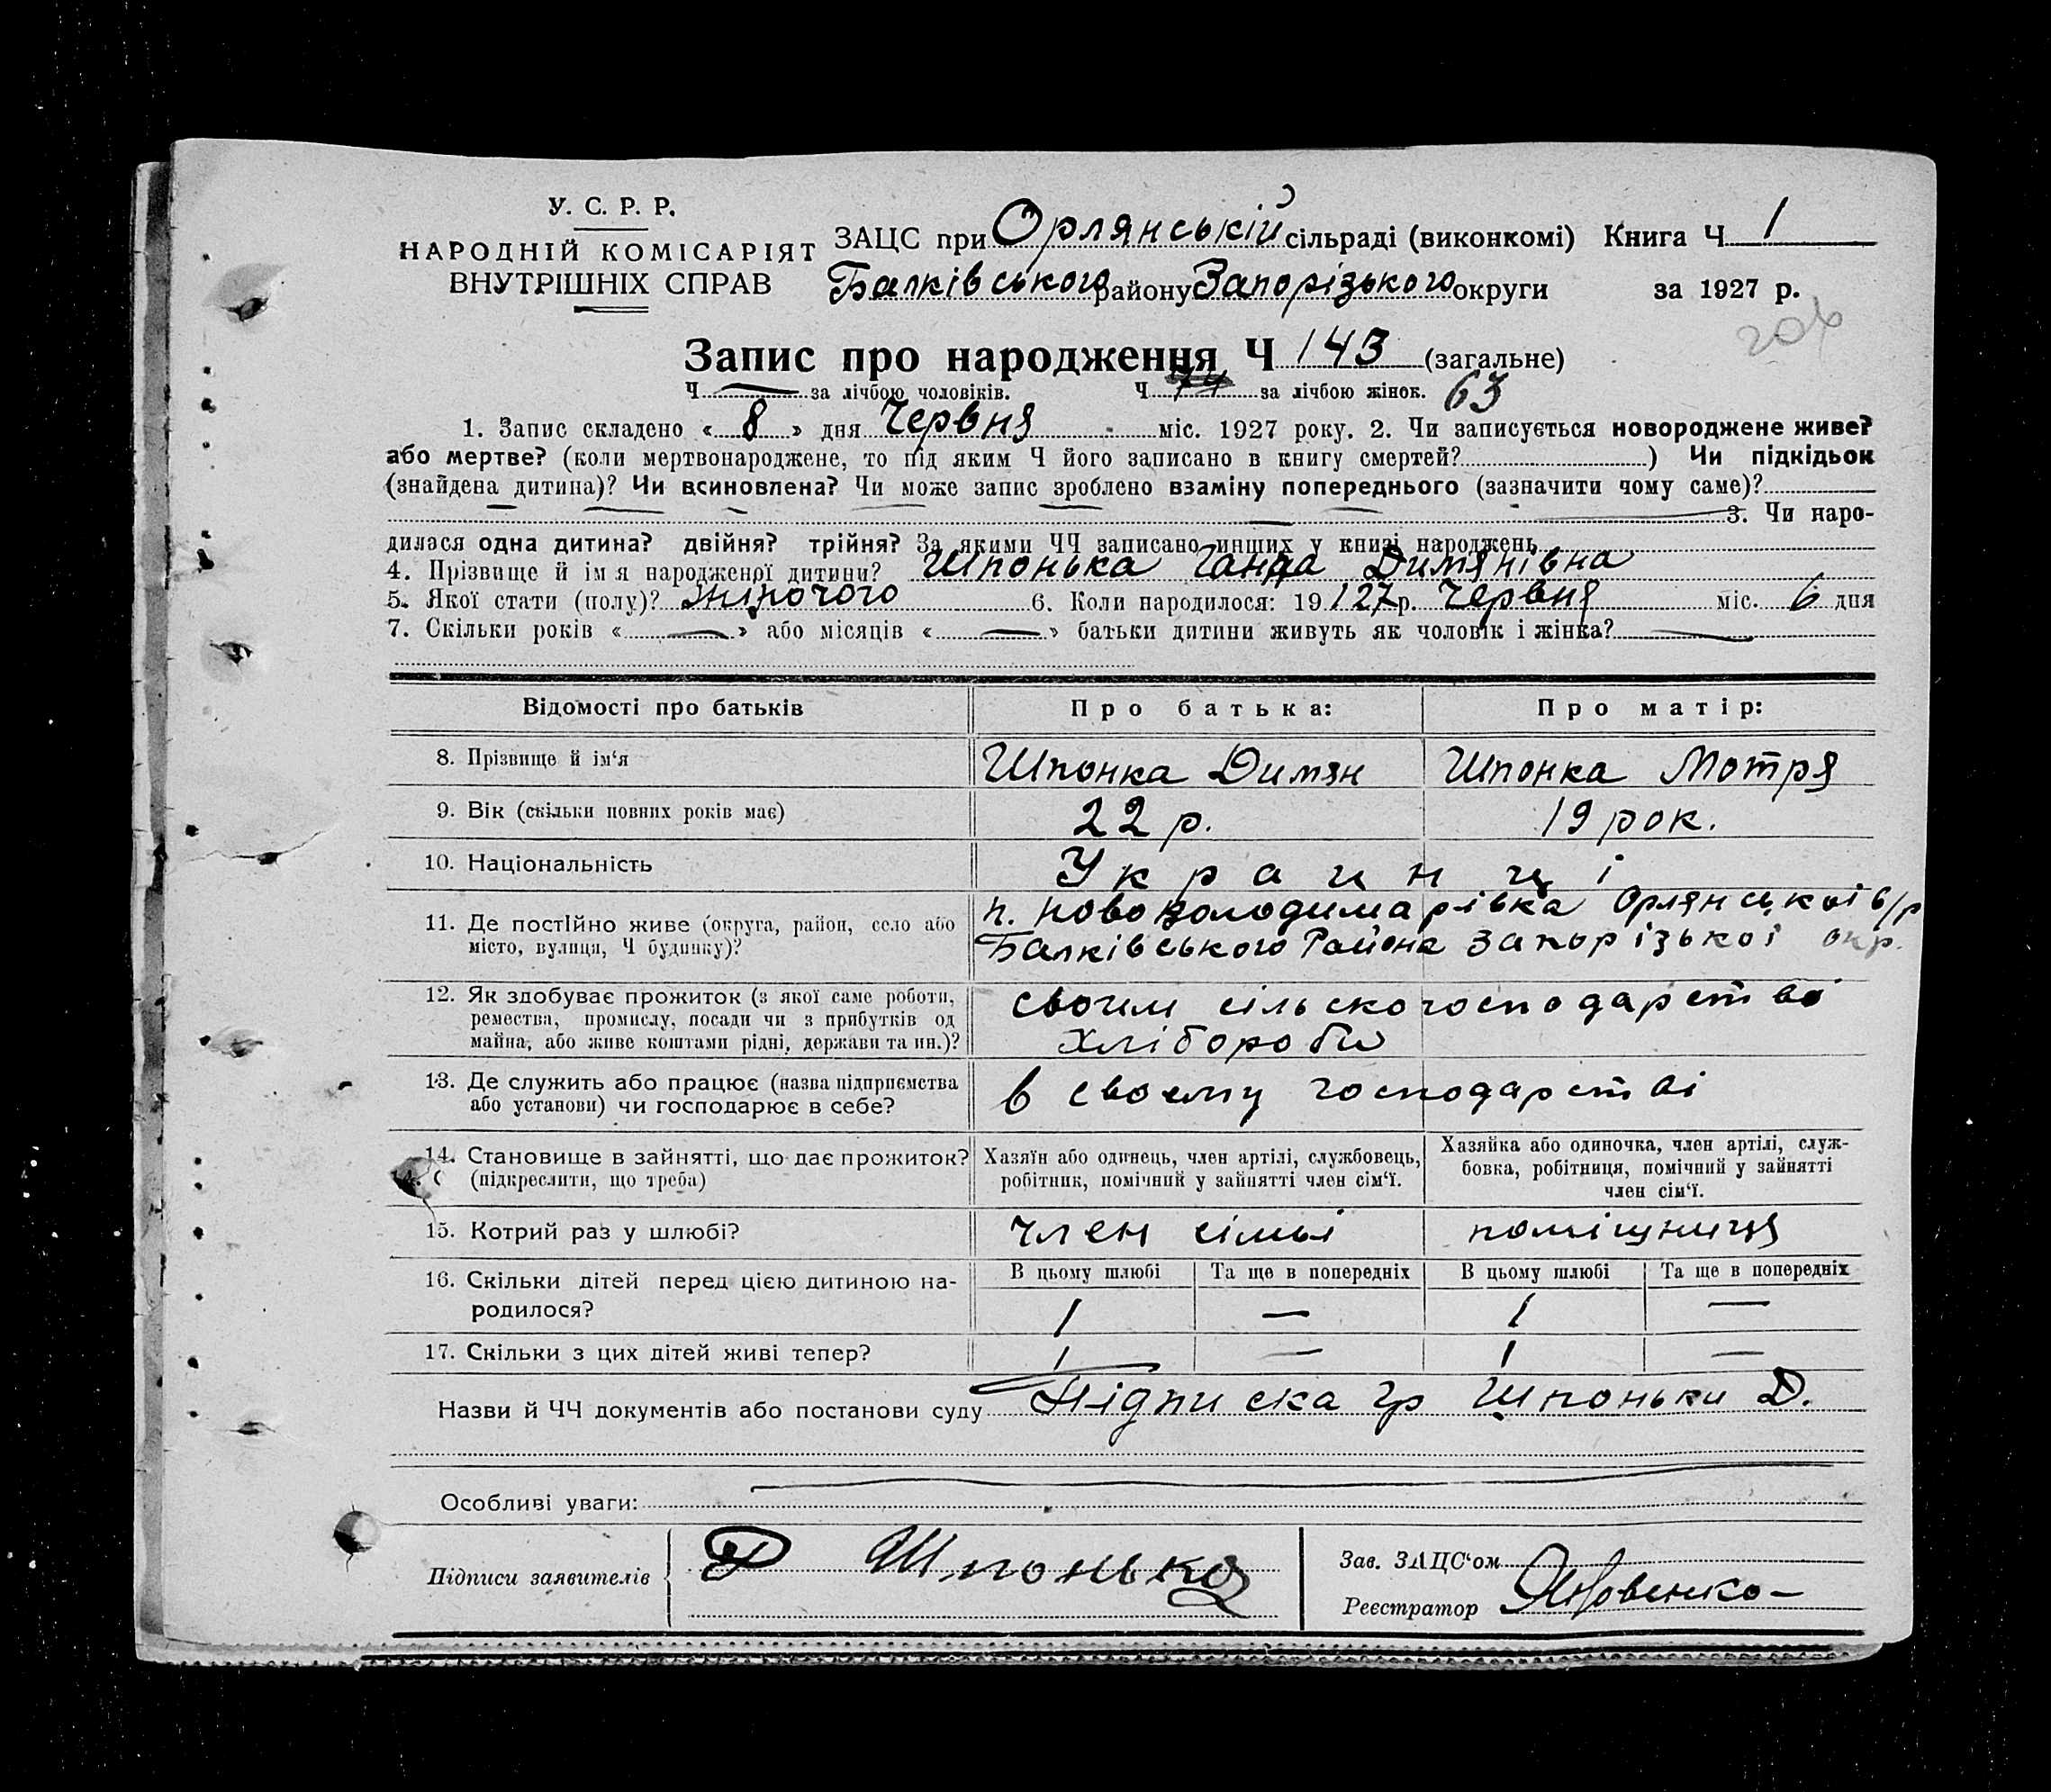 У. С. Р. Р.
НАРОДНІЙ КОМІСАРІЯТ
ВНУТРІШНІХ СПРАВ
ЗАЦС при Орлянській сільраді (виконкомі) Книга Ч 1
Балківського району Запорізького округи за 1927 р.
Запис про народження Ч 143 (загальне)
Ч — за лічбою чоловіків. Ч за лічбою жінок. 63
1. Запис складено « 8 » дня Червня міс. 1927 року. 2. Чи записується новороджене живе?
або мертве? (коли мертвонароджене, то під яким Ч його записано в книгу смертей? ) Чи підкідьок
(знайдена дитина)? Чи всиновлена? Чи може запис зроблено взаміну попереднього (зазначити чому саме)?
3. Чи наро-
дилася одна дитина? двійня? трійня? За якими ЧЧ записано инших у книзі народжень
4. Прізвище й ім я народженої дитини? Шпонька Ганна Димянівна
5. Якої стати (полу)? жіночого 6. Коли народилося: 19127р. Червня міс. 6 дня
7. Скільки років « — » або місяців « — » батьки дитини живуть як чоловік і жінка? —
Відомості про батьків Про батька: Про матір:
8. Прізвище й ім'я Шпонка Димян Шпонка Мотря
9. Вік (скільки повних років має) 22 р. 19 рок.
10. Національність Украинці
11. Де постійно живе (округа, район, село або
місто, вулиця, Ч будинку)?
п. Нововолодимарівка Орлянської с/р
Балківського Района Запорізької окр.
12. Як здобуває прожиток (з якої саме роботи,
ремества, промислу, посади чи з прибутків од
майна, або живе коштами рідні, держави та ин.)?
своим сільскогосподарстві
хлібороби
13. Де служить або працює (назва підприємства
або установи) чи господарює в себе?
в своєму господарстві
14. Становище в зайнятті, що дає прожиток?
(підкреслити, що треба)
Хазяїн або одинець, член артілі, службовець,
робітник, помічний у зайнятті член сім'ї.
Хазяйка або одиночка, член артілі, служ-
бовка, робітниця, помічний у зайнятті
член сім'ї.
15. Котрий раз у шлюбі? член сімьї поміщниця
16. Скільки дітей перед цією дитиною на-
родилося?
В цьому шлюбі Та ще в попередніх В цьому шлюбі Та ще в попередніх
1 — 1 —
17. Скільки з цих дітей живі тепер? 1 — 1 —
Назви й ЧЧ документів або постанови суду Підписка гр Шпоньки Д.
Особливі уваги:
Підписи заявителів Д Шпонька
Зав. ЗАЦС'ом
Реєстратор